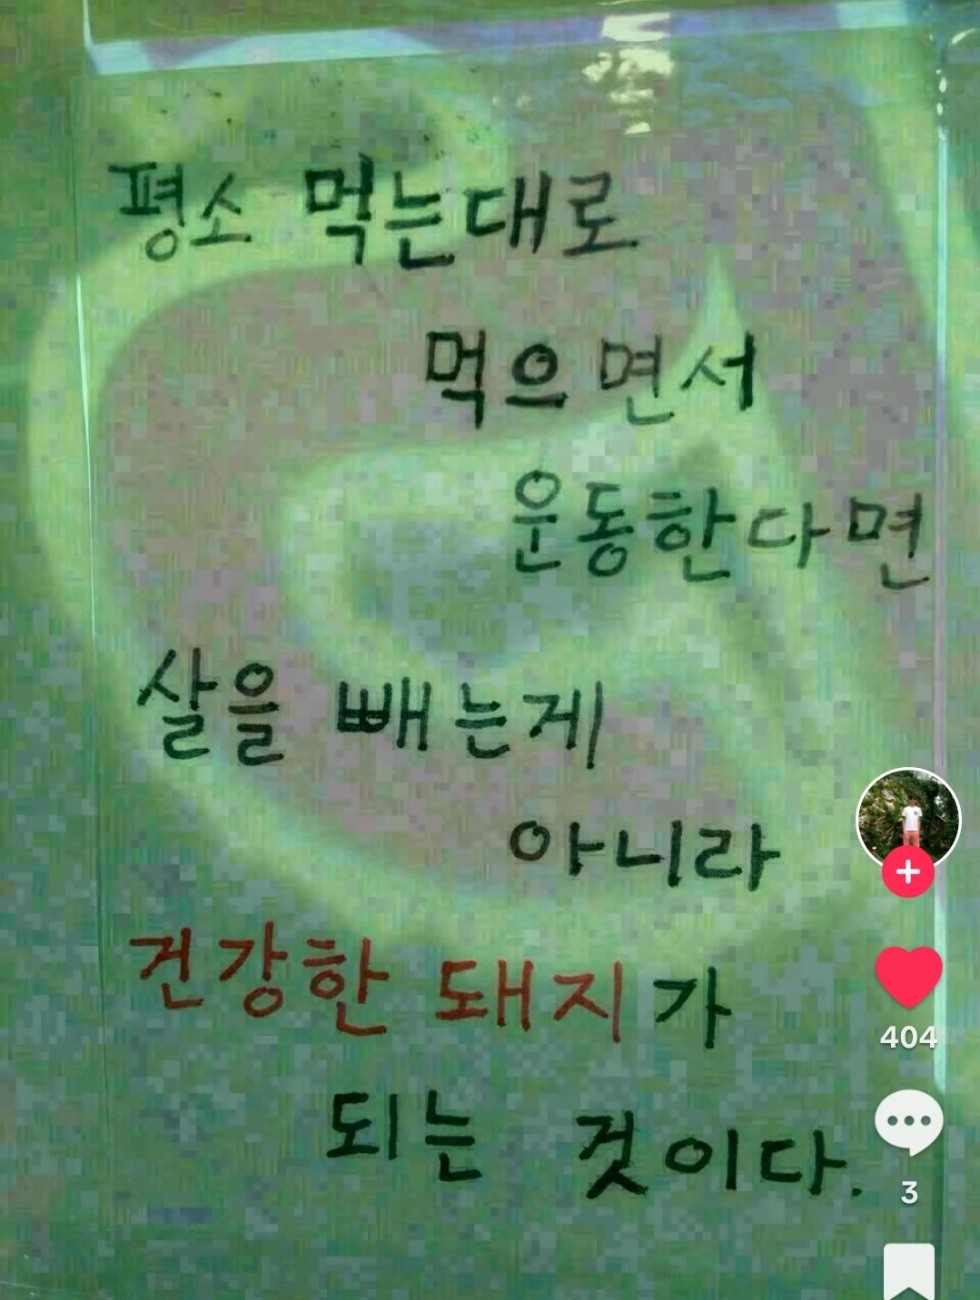 평소 먹는대로
먹으면서
운동한다면
살을 빼는게
아니라
건강한 돼지가
되는 것이다.
404
3